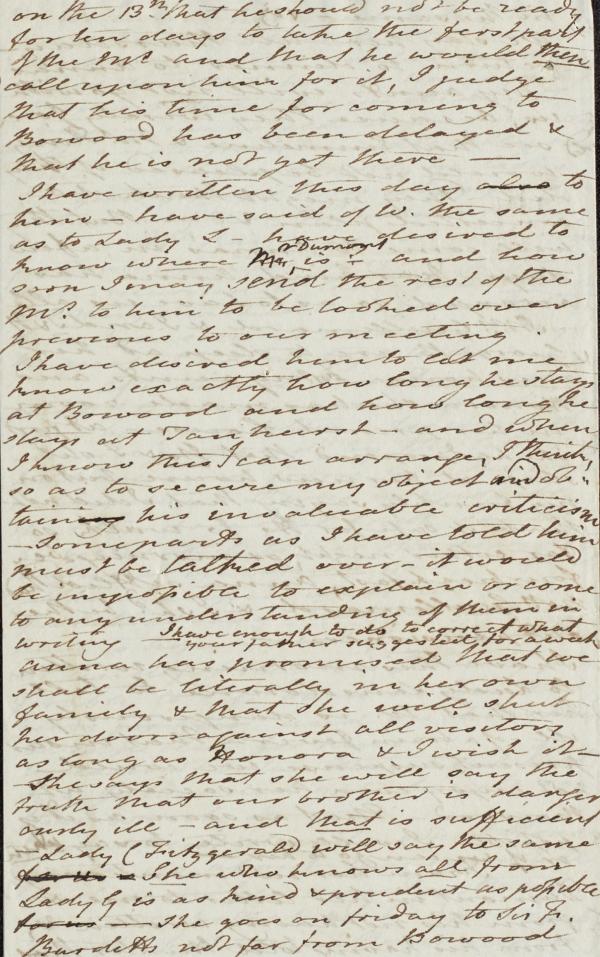 on the 13th that he should not be ready
for ten days to take the first part
of the MS and that he would then
call upon him for it, I judge
that his time for coming to
Bowood has been delayed &
that he is not yet there —
I have written this day also to
him – have said of W. the same
as to Lady L – have desired to
know where Mr Dumont is – and how
soon I may send the rest of the
MS. to him to be looked over
previous to our meeting.
I have desired him to let me
know exactly how long he stays
at Bowood and how long he
stays at Tanhurst – and when
I know this I can arrange, I think,
so as to secure my object and ob
taining his invaluable criticism
– Some parts as I have told him
must be talked over – it would
be impossible to explain or come
to any understanding of them in
writing I have enough to do to correct what
your father suggested for a week
Anna has promised that we
shall be literally in her own
family & that she will shut
her doors against all visitors
as long as Honora & I wish it –
– She says that she will say the
truth that our brother is danger
ously ill – and that is sufficient
– Lady C Fitzgerald will say the same
for us – She who knows all from
Lady G is as kind & prudent as possible
for us — She goes on friday to Sir Fr.
Burdetts not far from Bowood